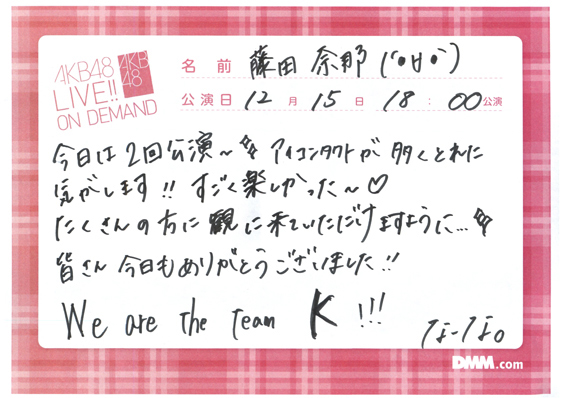 AKB48
LIVE!!
ON DEMAND
AKB
48
名前 藤田奈那(´•ㅂ•`)
公演日 12月15日 18:00公演
今日は2回公演～ アイコンタクトが多くとれた
気がします!! すごく楽しかった～♡
たくさんの方に観に来ていただけますように…
皆さん今日もありがとうございました!!
We are the team K!!!
なーな。
DMM.com